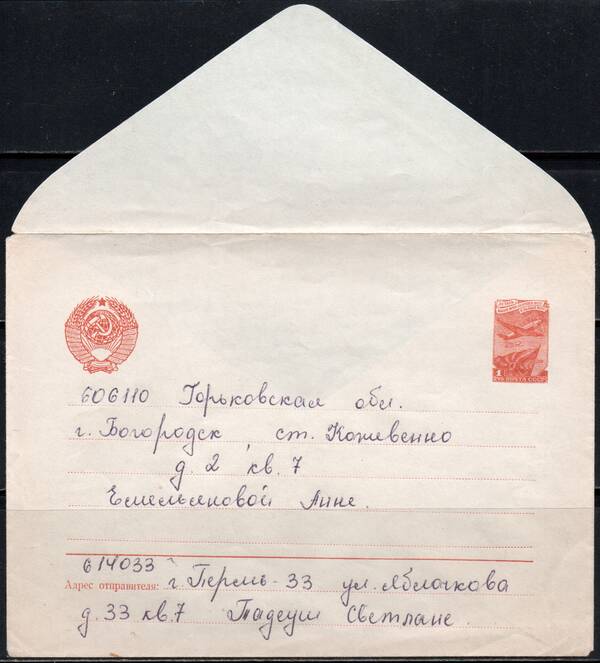 1
РУБ ПОЧТА СССР
606110 Горьковская обл.
г. Богородск, ст. Кожевенно
д 2 кв. 7
Емельяновой Анне.
614033
Адрес отправителя: г. Пермь-33 ул. Яблочкова
д. 33 кв. 7 Падеуш Светлане.